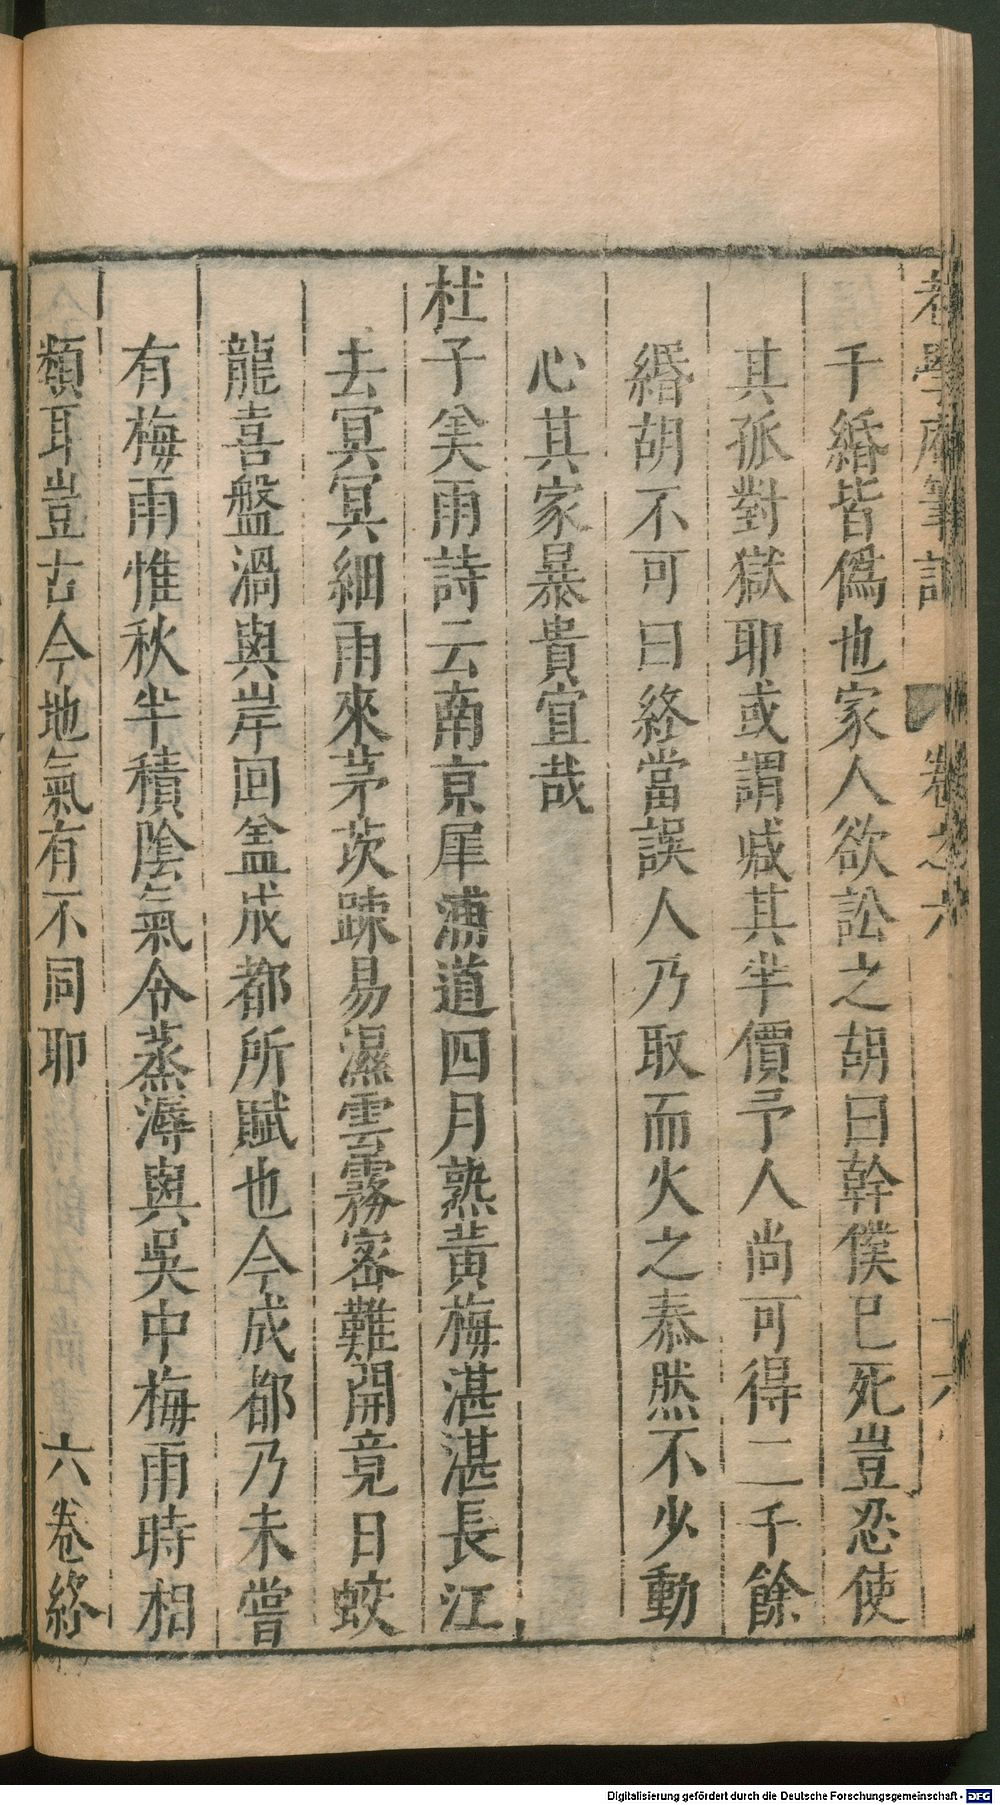 老學庵筆記 卷之六 十六
千緡皆僞也家人欲訟之胡曰幹僕已死豈忍使
其孤對獄耶或謂戚其半價予人尚可得二千餘
緡胡不可曰終當誤人乃取而火之泰然不少動
心其家暴貴宜哉
杜子美雨詩云南京犀浦道四月熟黃梅湛湛長江
去冥冥細雨來茅茨踈易濕雲霧密難開竟日蛟
龍喜盤渦與岸回盖成都所賦也今成都乃未嘗
有梅雨惟秋半積陰氣令蒸溽與吳中梅雨時相
類耳豈古今地氣有不同耶 六卷終
Digitalisierung gefördert durch die Deutsche Forschungsgemeinschaft - DFG